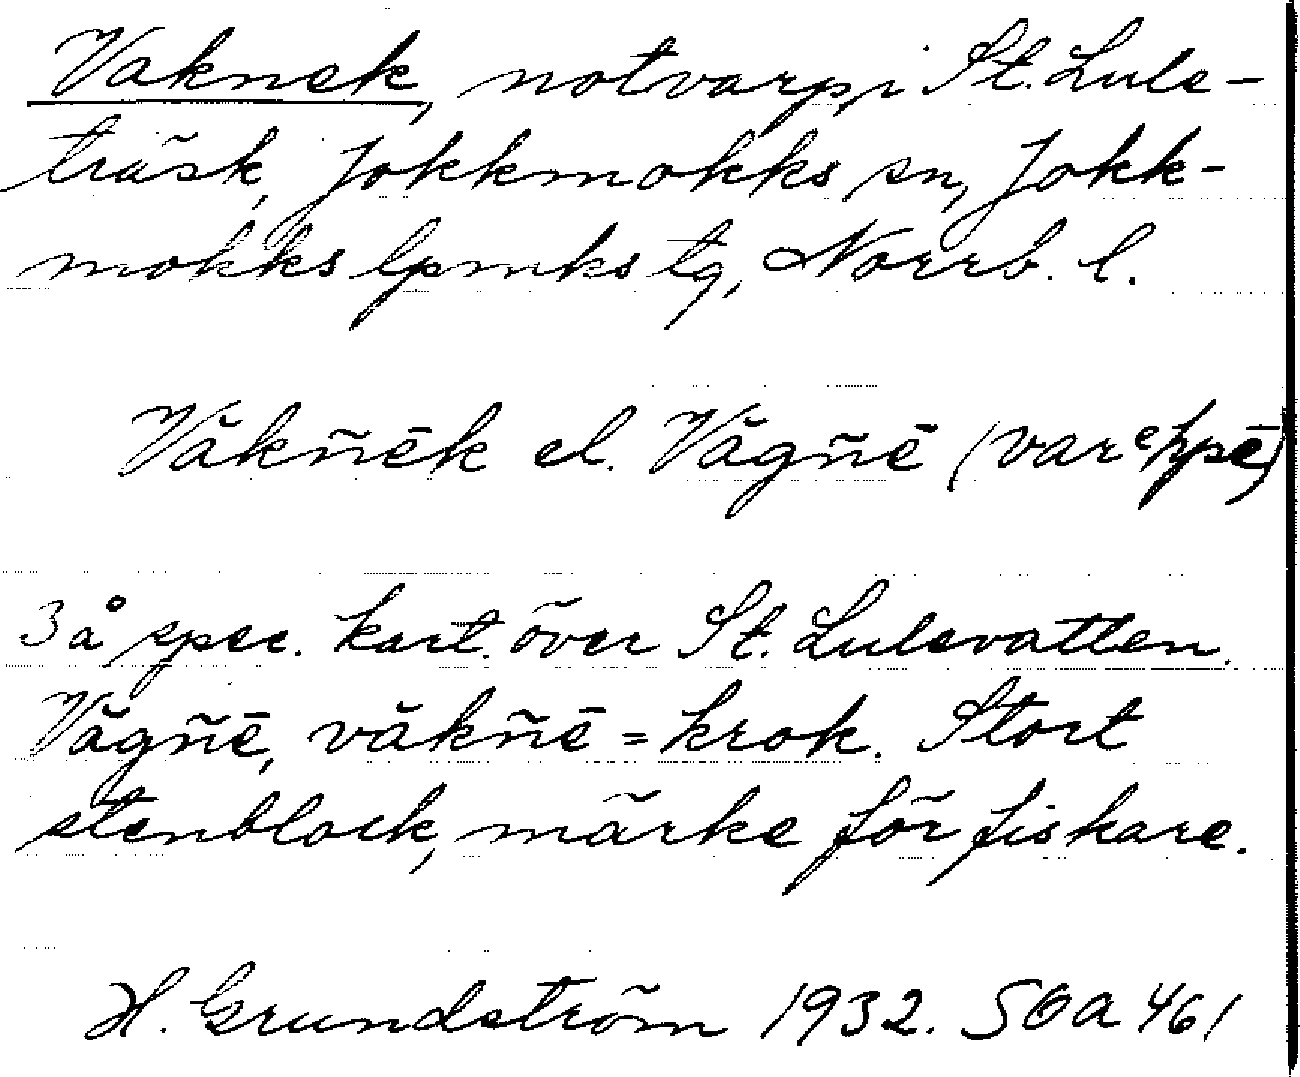 Vaknek, notvarp, i St. Lule-
träsk, Jokkmokks sn, Jokk-
mokks lpmks tg, Norrb. l.
Văkñēk el. Văgñē (varᵉppē)
3 å spec. kart. över St. Lulevatten.
Văgñē, văkñē = krok. Stort
stenblock, märke för fiskare.
H. Grundström 1932. SOA 461